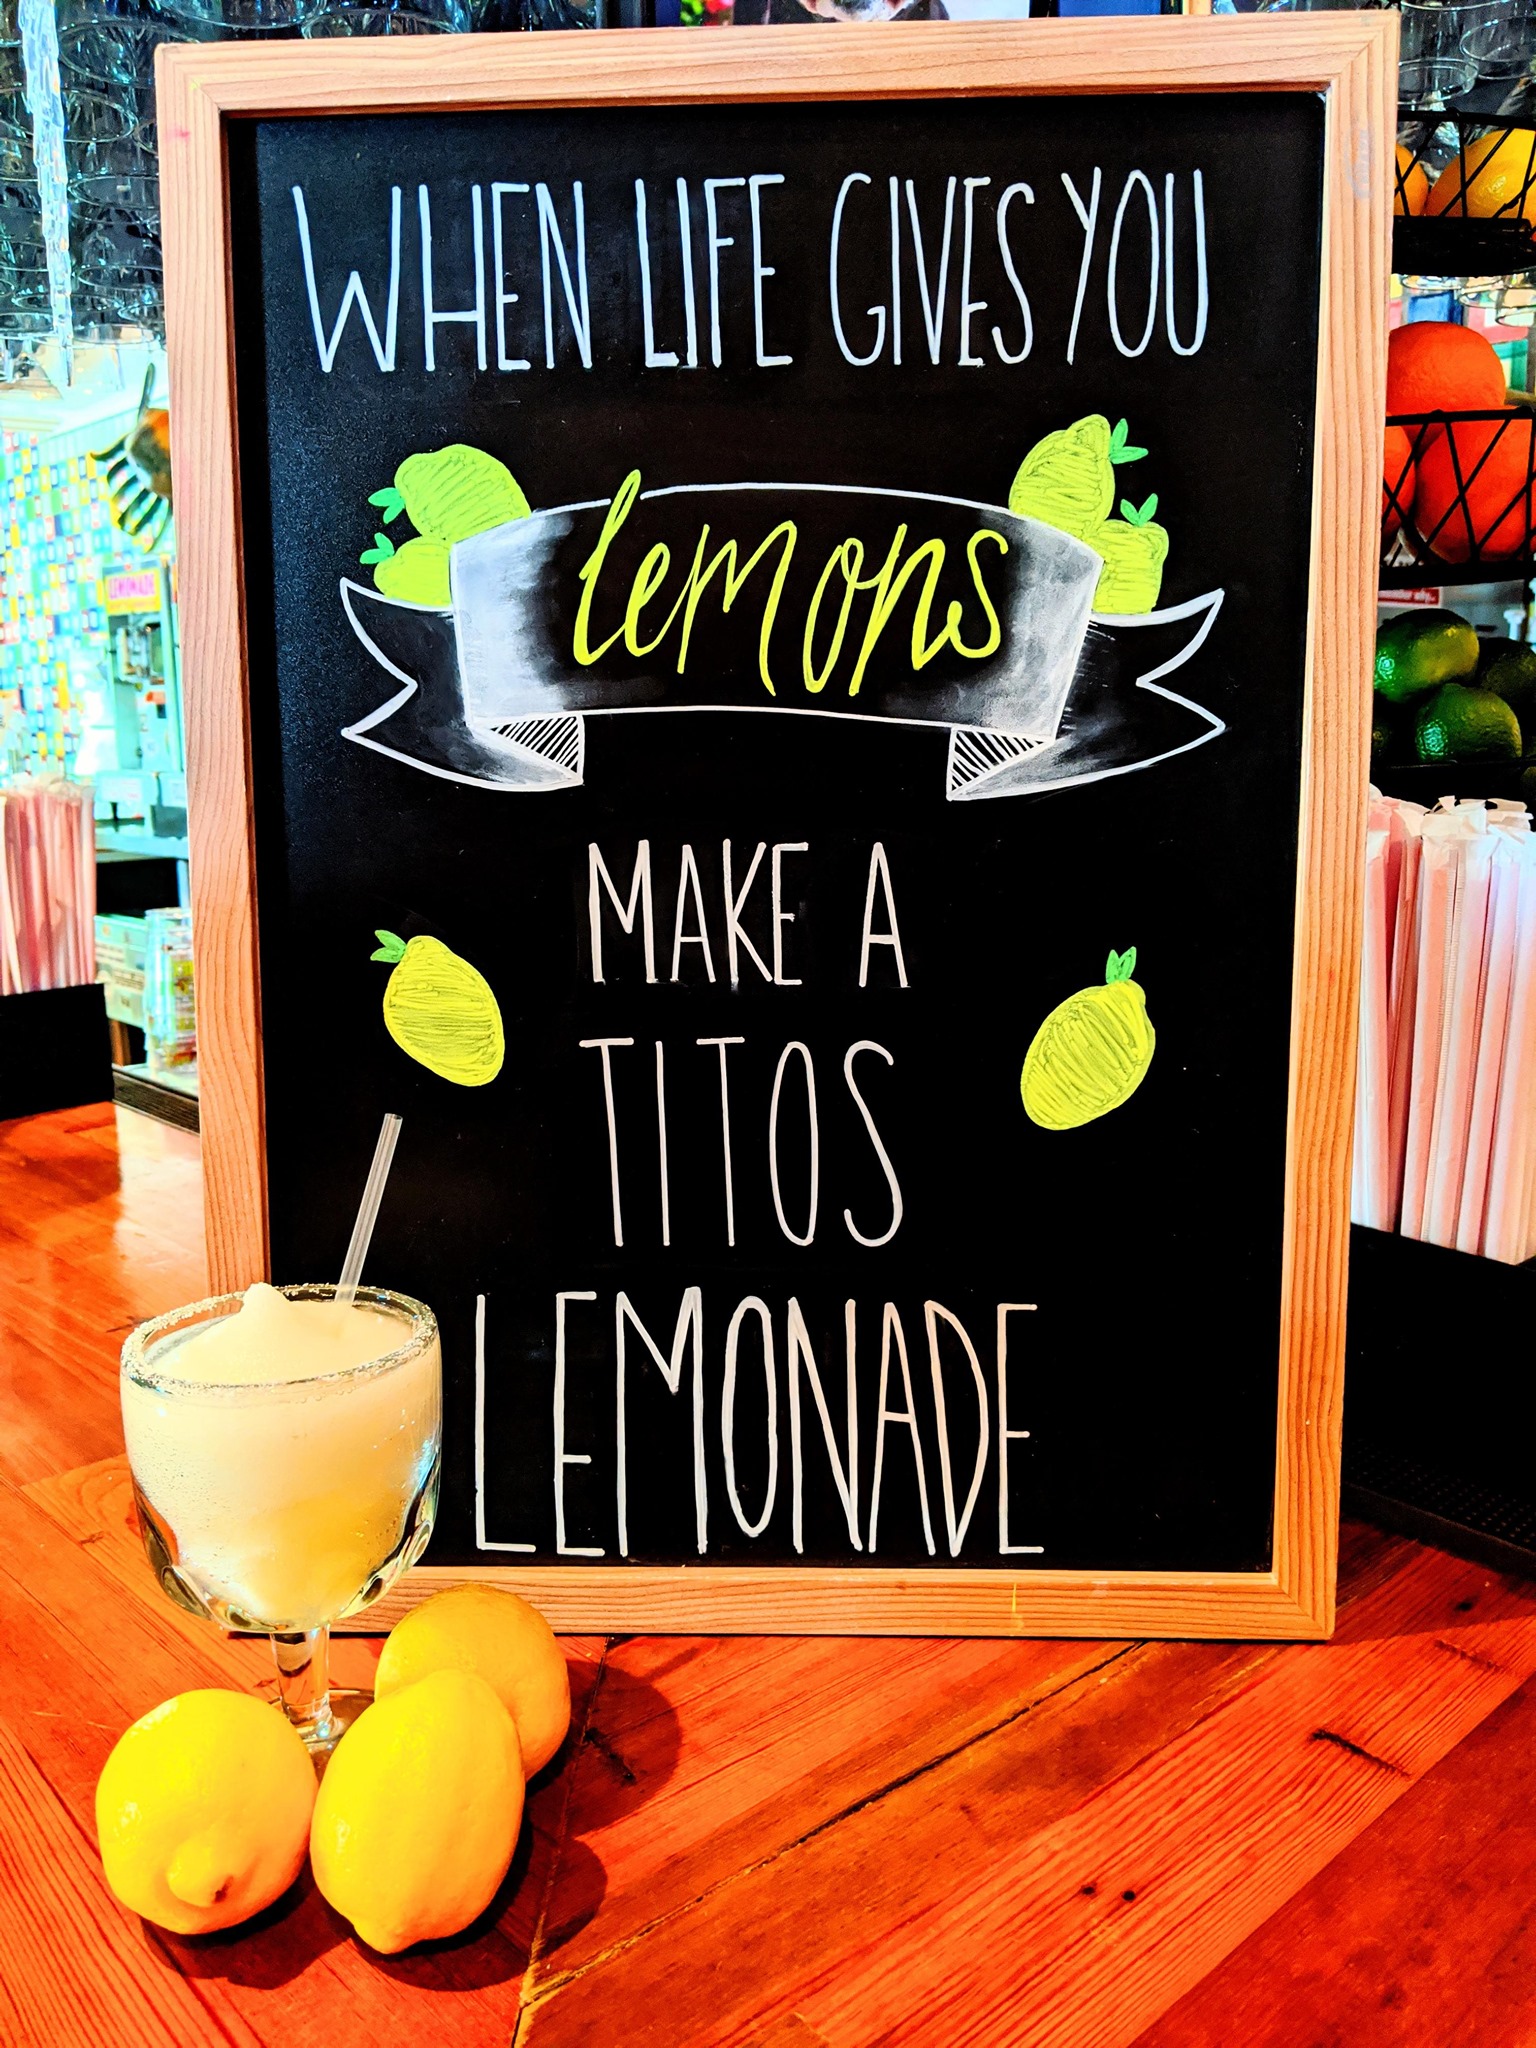 WHEN LIFE GIVES YOU
lemons
MAKE A
TITOS
LEMONADE
LEMONADE